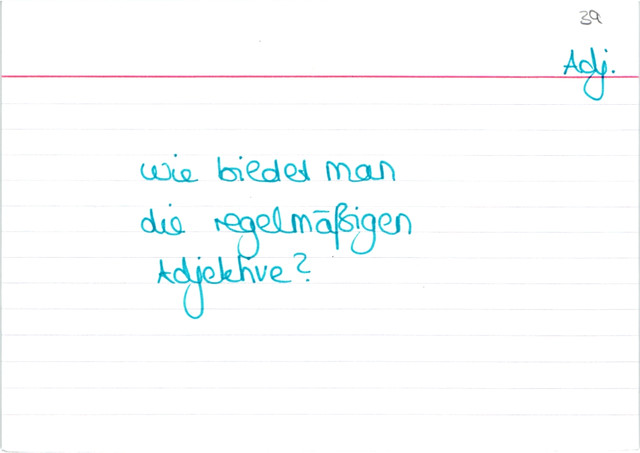 39
Adj.
wie bildet man
die regelmäßigen
Adjektive?